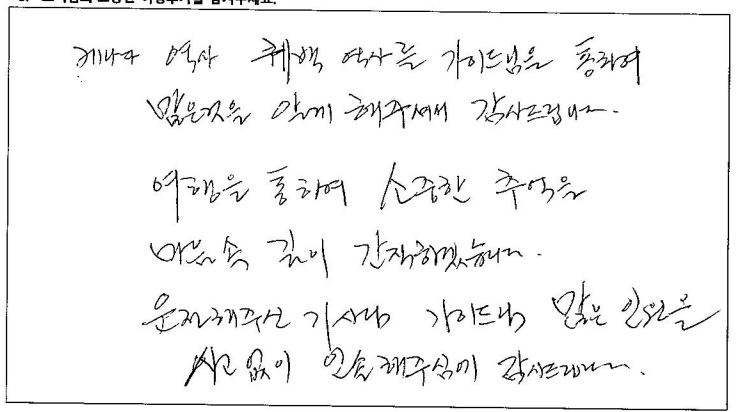 고객님의 소중한 여행후기를 남겨주세요.
캐나다 역사 퀘백 역사를 가이드님을 통하여
많은것을 알게 해주셔서 감사드립니다.
여행을 통하여 소중한 추억을
마음속 깊이 간직하겠습니다.
운전해주신 기사님 가이드님 많은 인원을
사고 없이 인솔해주심에 감사드립니다.